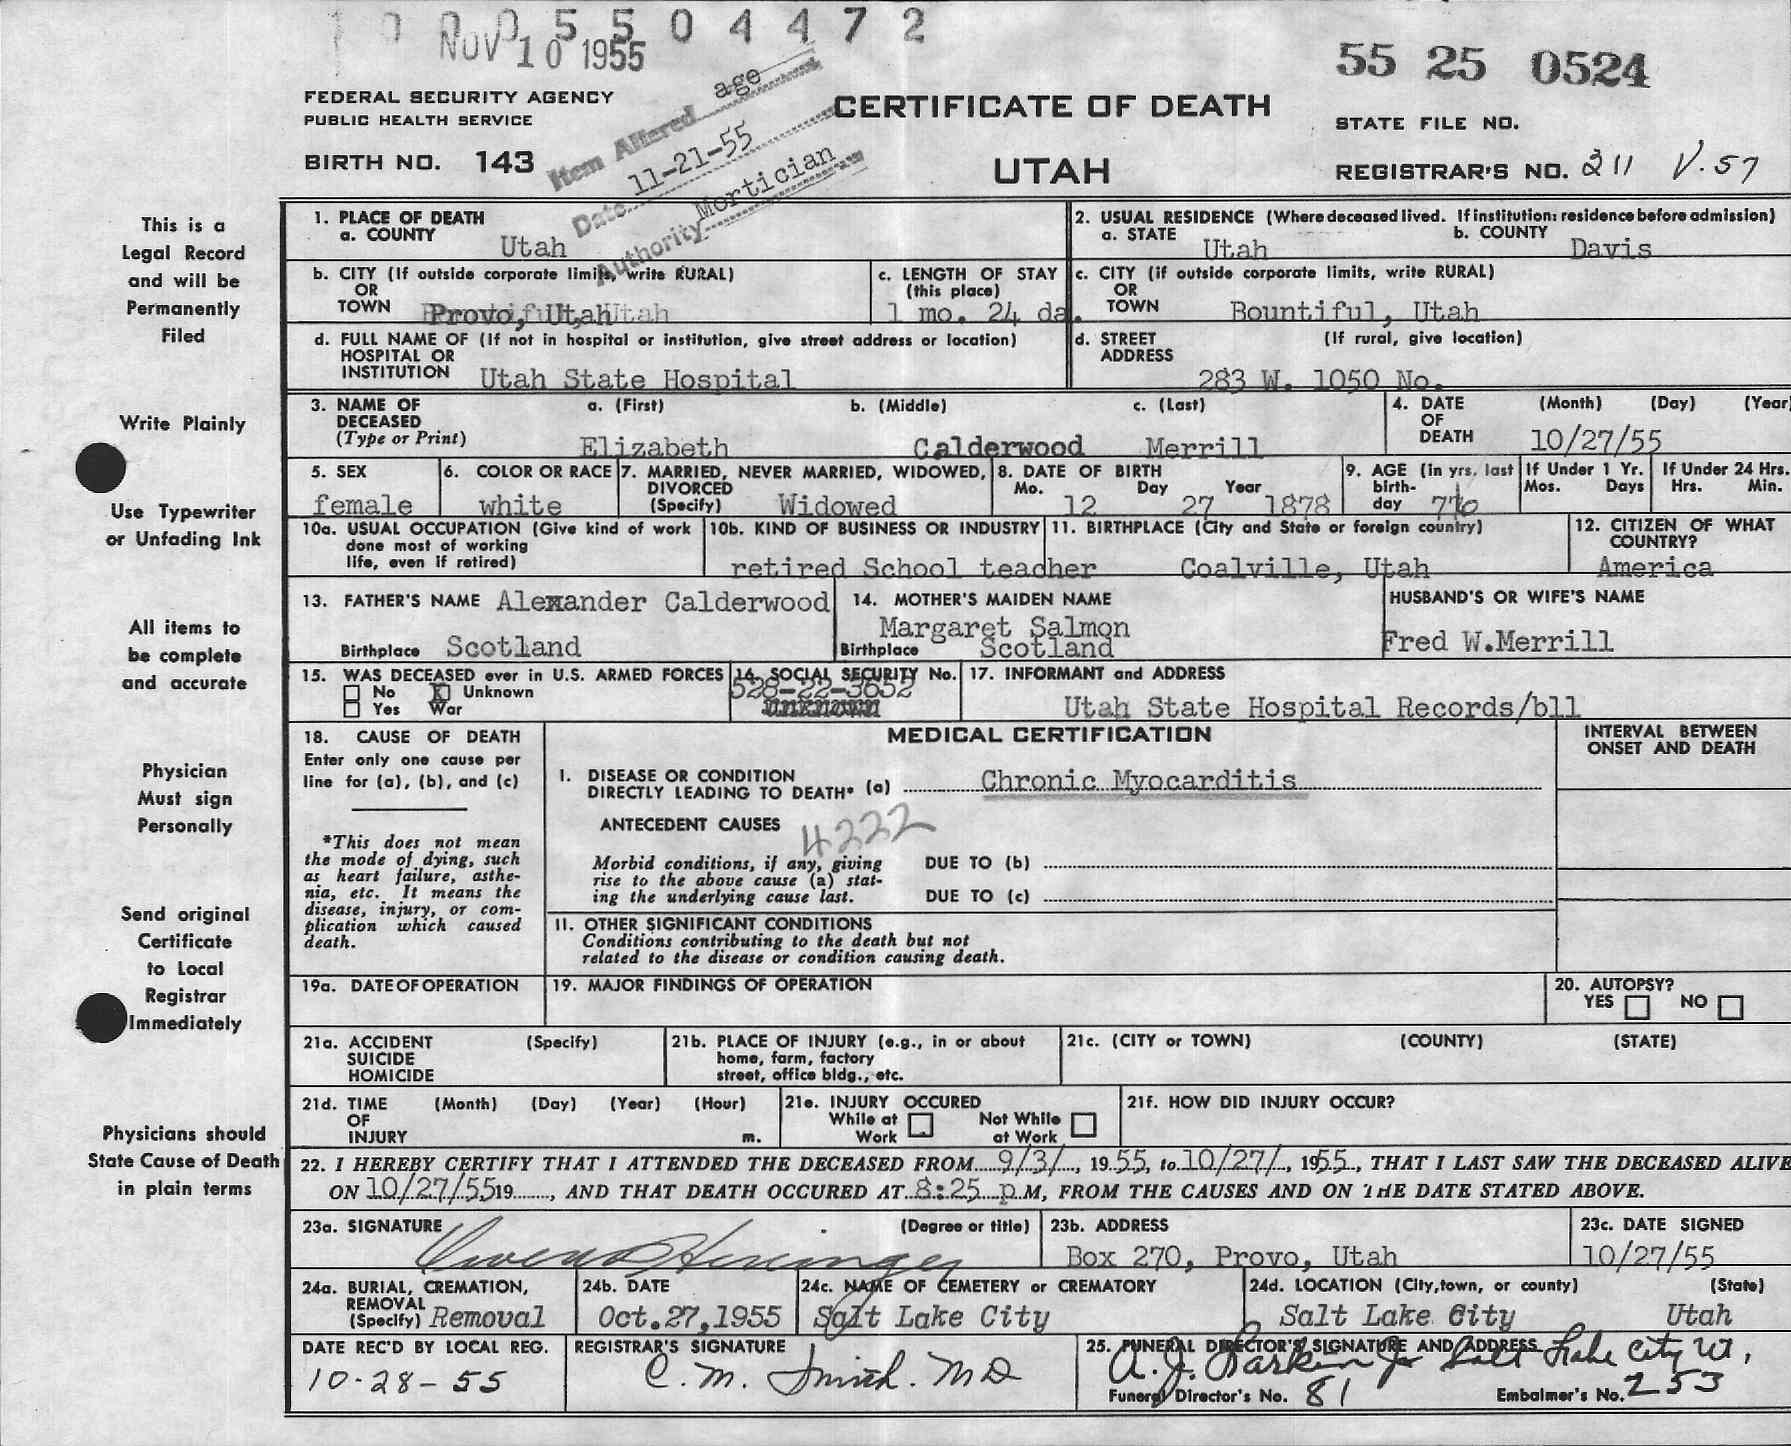 1 0 0 0 5 5 0 4 4 7 2
NOV 10 1955
55 25 0524
FEDERAL SECURITY AGENCY
PUBLIC HEALTH SERVICE
BIRTH NO. 143
Item Altered age
Date 11-21-55
Authority Mortician
CERTIFICATE OF DEATH
UTAH
STATE FILE NO.
REGISTRAR'S NO. 211 V.57
This is a
Legal Record
and will be
Permanently
Filed
Write Plainly
Use Typewriter
or Unfading Ink
All items to
be complete
and accurate
Physician
Must sign
Personally
Send original
Certificate
to Local
Registrar
Immediately
Physicians should
State Cause of Death
in plain terms
1. PLACE OF DEATH
a. COUNTY Utah
2. USUAL RESIDENCE (Where deceased lived. If institution: residence before admission)
a. STATE Utah b. COUNTY Davis
b. CITY (If outside corporate limits, write RURAL)
OR
TOWN Provo, Utah
c. LENGTH OF STAY
(this place)
1 mo. 24 da.
c. CITY (if outside corporate limits, write RURAL)
OR
TOWN Bountiful, Utah
d. FULL NAME OF (If not in hospital or institution, give street address or location)
HOSPITAL OR
INSTITUTION Utah State Hospital
d. STREET (If rural, give location)
ADDRESS
283 W. 1050 No.
3. NAME OF a. (First) b. (Middle) c. (Last)
DECEASED
(Type or Print) Elizabeth Calderwood Merrill
4. DATE (Month) (Day) (Year)
OF
DEATH 10/27/55
5. SEX
female
6. COLOR OR RACE
white
7. MARRIED, NEVER MARRIED, WIDOWED,
DIVORCED
(Specify) Widowed
8. DATE OF BIRTH
Mo. Day Year
12 27 1878
9. AGE (in yrs. last
birth-
day 76
If Under 1 Yr.
Mos. Days
If Under 24 Hrs.
Hrs. Min.
10a. USUAL OCCUPATION (Give kind of work
done most of working
life, even if retired)
10b. KIND OF BUSINESS OR INDUSTRY
retired School teacher
11. BIRTHPLACE (City and State or foreign country)
Coalville, Utah
12. CITIZEN OF WHAT
COUNTRY?
America
13. FATHER'S NAME Alexander Calderwood
Birthplace Scotland
14. MOTHER'S MAIDEN NAME
Margaret Salmon
Birthplace Scotland
HUSBAND'S OR WIFE'S NAME
Fred W.Merrill
15. WAS DECEASED ever in U.S. ARMED FORCES
No X Unknown
Yes War
16. SOCIAL SECURITY No.
528-22-3652
unknown
17. INFORMANT and ADDRESS
Utah State Hospital Records/bll
18. CAUSE OF DEATH
Enter only one cause per
line for (a), (b), and (c)
*This does not mean
the mode of dying, such
as heart failure, asthe-
nia, etc. It means the
disease, injury, or com-
plication which caused
death.
MEDICAL CERTIFICATION
INTERVAL BETWEEN
ONSET AND DEATH
I. DISEASE OR CONDITION
DIRECTLY LEADING TO DEATH* (a) Chronic Myocarditis
ANTECEDENT CAUSES
4222
Morbid conditions, if any, giving
rise to the above cause (a) stat-
ing the underlying cause last.
DUE TO (b)
DUE TO (c)
II. OTHER SIGNIFICANT CONDITIONS
Conditions contributing to the death but not
related to the disease or condition causing death.
19a. DATE OF OPERATION
19. MAJOR FINDINGS OF OPERATION
20. AUTOPSY?
YES NO
21a. ACCIDENT (Specify)
SUICIDE
HOMICIDE
21b. PLACE OF INJURY (e.g., in or about
home, farm, factory
street, office bldg., etc.
21c. (CITY or TOWN) (COUNTY) (STATE)
21d. TIME (Month) (Day) (Year) (Hour)
OF
INJURY m.
21e. INJURY OCCURED
While at Work
Not While at Work
21f. HOW DID INJURY OCCUR?
22. I HEREBY CERTIFY THAT I ATTENDED THE DECEASED FROM 9/3/, 1955, to 10/27/, 1955, THAT I LAST SAW THE DECEASED ALIVE
ON 10/27/55 19, AND THAT DEATH OCCURED AT 8:25 p M, FROM THE CAUSES AND ON THE DATE STATED ABOVE.
23a. SIGNATURE (Degree or title)
Owen Heninger
23b. ADDRESS
Box 270, Provo, Utah
23c. DATE SIGNED
10/27/55
24a. BURIAL, CREMATION,
REMOVAL
(Specify) Removal
24b. DATE
Oct.27,1955
24c. NAME OF CEMETERY or CREMATORY
Salt Lake City
24d. LOCATION (City,town, or county) (State)
Salt Lake City Utah
DATE REC'D BY LOCAL REG.
10-28-55
REGISTRAR'S SIGNATURE
C. M. Smith. MD
25. FUNERAL DIRECTOR'S SIGNATURE AND ADDRESS
A. J. Larkin Jr Salt Lake City Ut,
Funeral Director's No. 81 Embalmer's No. 253